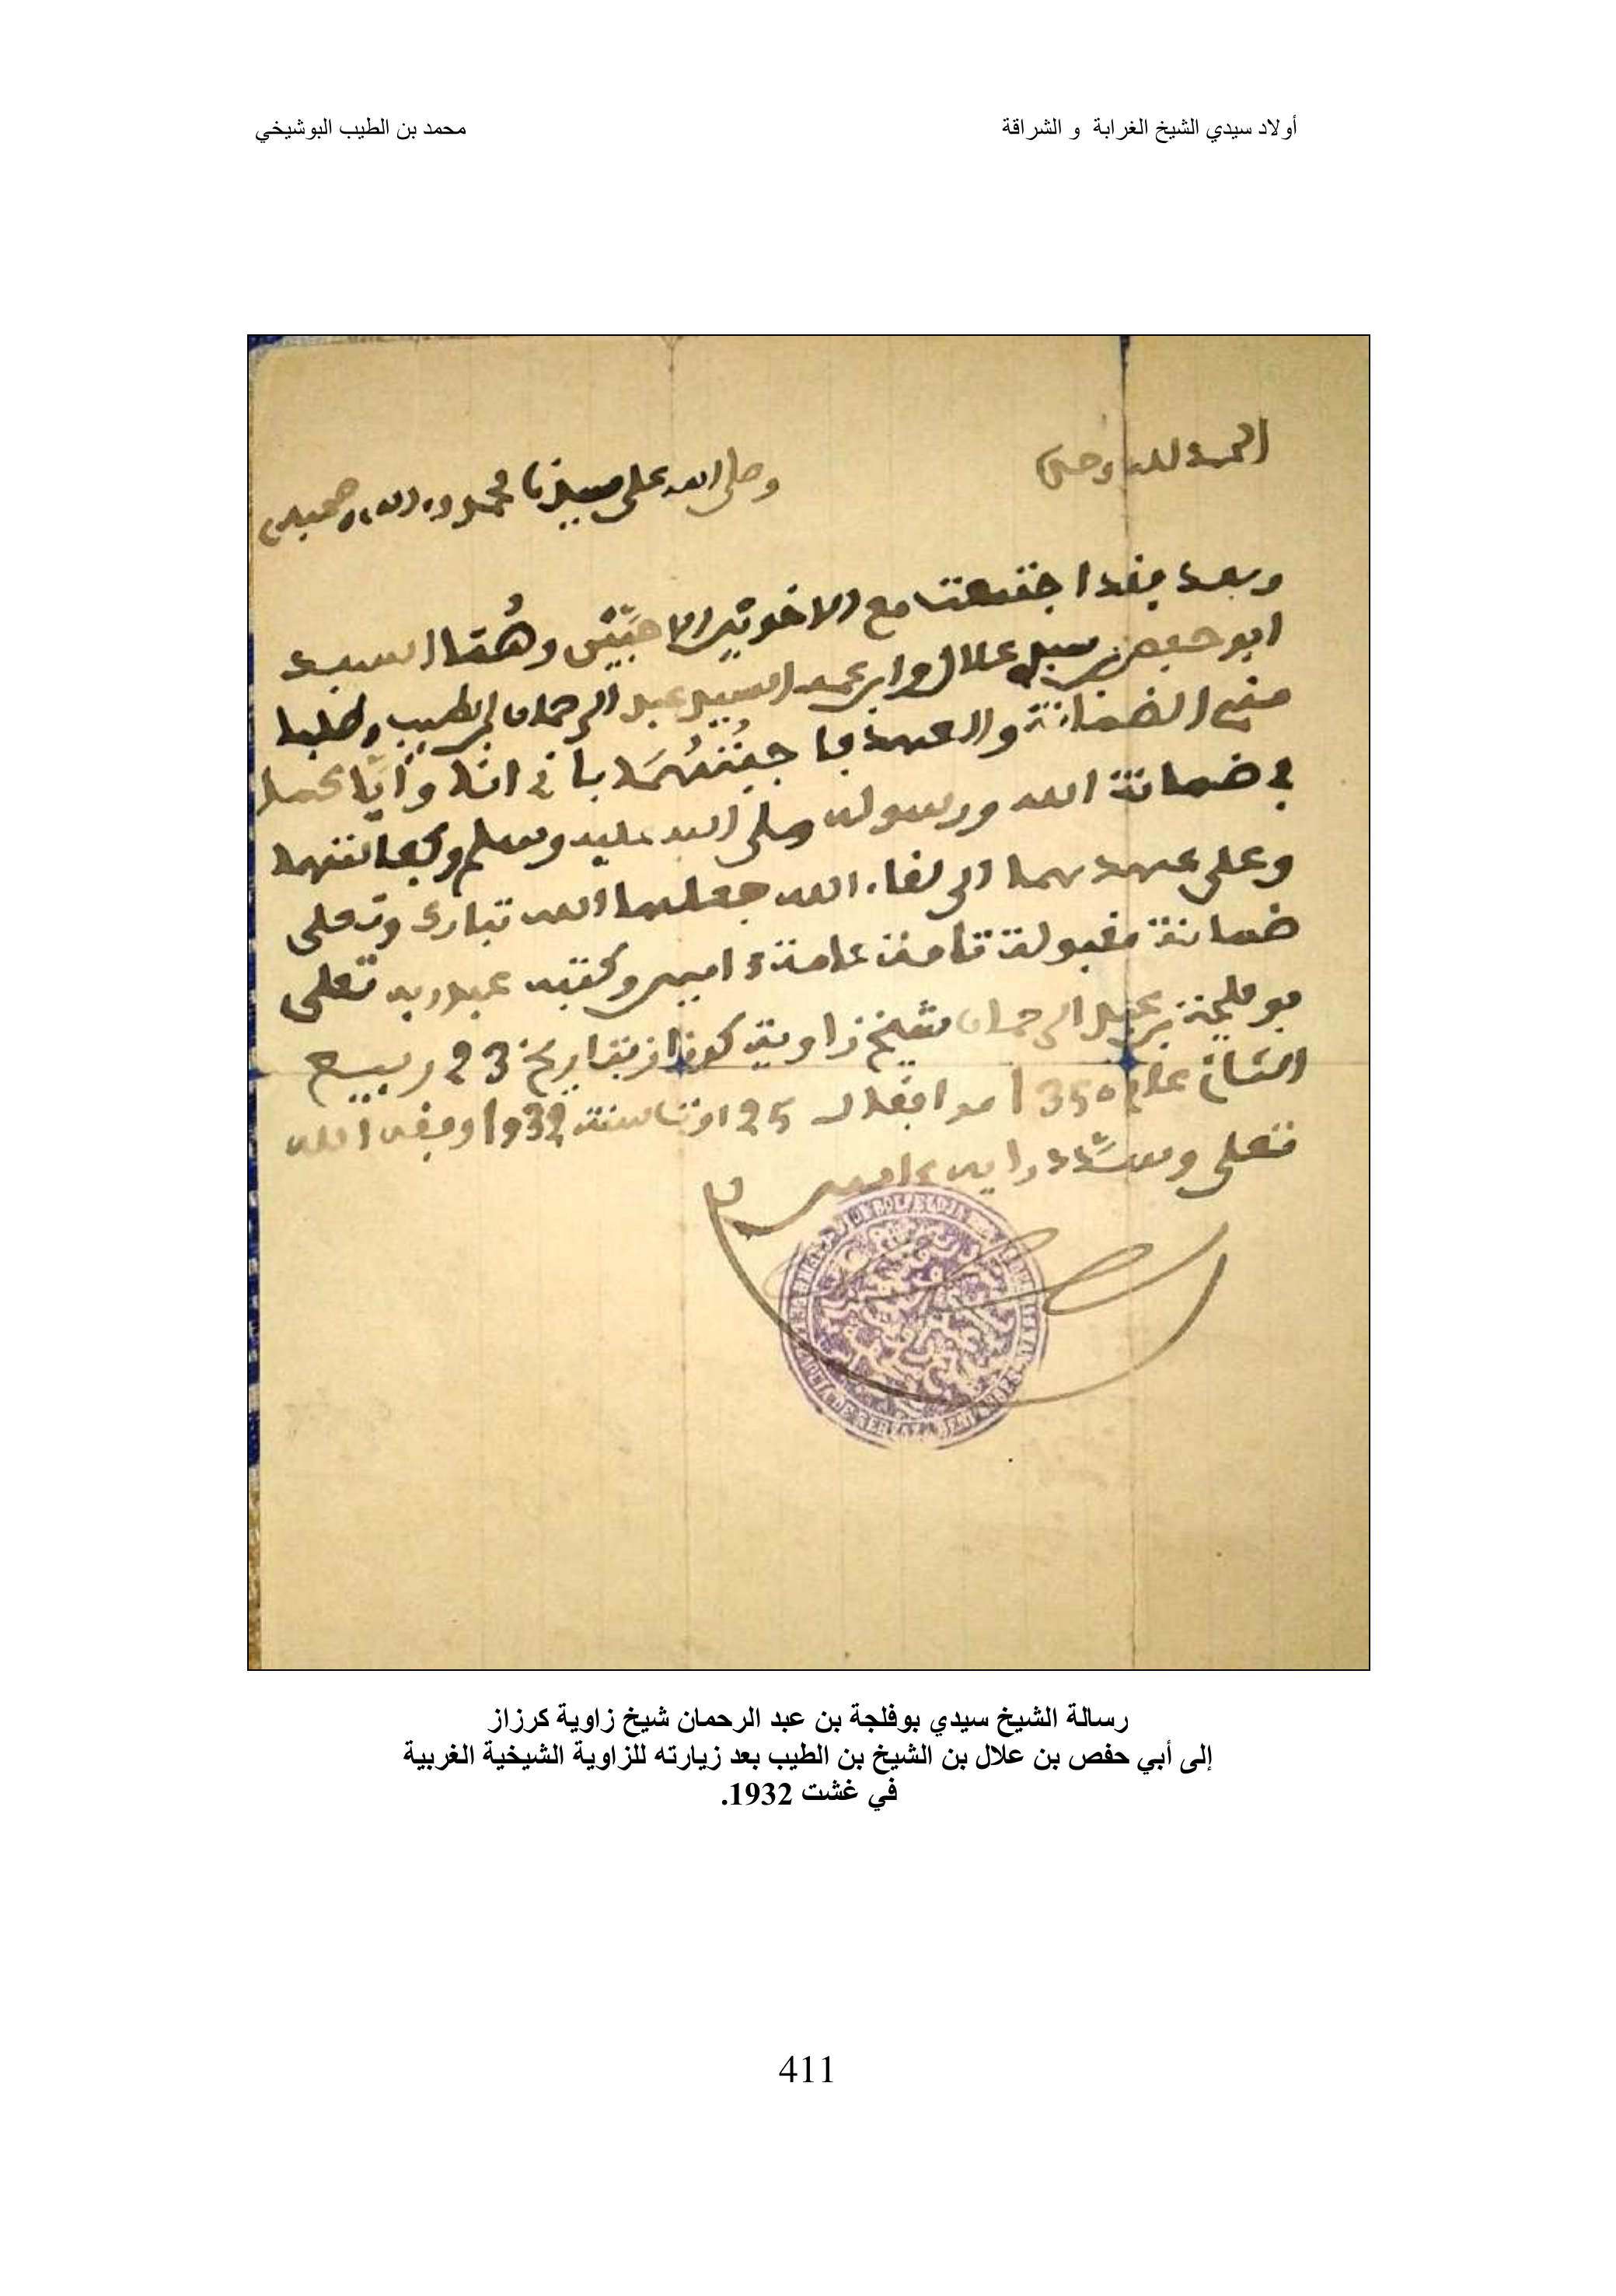 أولاد سيدي الشيخ الغرابة و الشراقة
محمد بن الطيب البوشيخي
الحمد لله وحده
وصلى الله على سيدنا محمد وءاله وصحبه
وبعد فقد اجتمعت مع الاخوين الاحبين وهما السيد
ابو حفص بن سيد علال وابن عمه السيد عبد الرحمان بن الطيب وطلبا
مني الضمانة والعهد فاجبتهما باني انا واياهما
في ضمانة الله ورسوله صلى الله عليه وسلم
وعلى عهدهما الى لقاء الله جعلها الله تبارك وتعلى
ضمانة مقبولة تامة عامة ءامين وكتبه عبد ربه تعلى
بوفلجة بن عبد الرحمان شيخ زاوية كرزاز بتاريخ 23 ربيع
الثاني عام 1350 موافقا لـ 25 اوت سنة 1932 وفقه الله
تعلى وسدد رايه ءامين
رسالة الشيخ سيدي بوفلجة بن عبد الرحمان شيخ زاوية كرزاز
إلى أبي حفص بن علال بن الشيخ بن الطيب بعد زيارته للزاوية الشيخية الغربية
في غشت 1932.
411